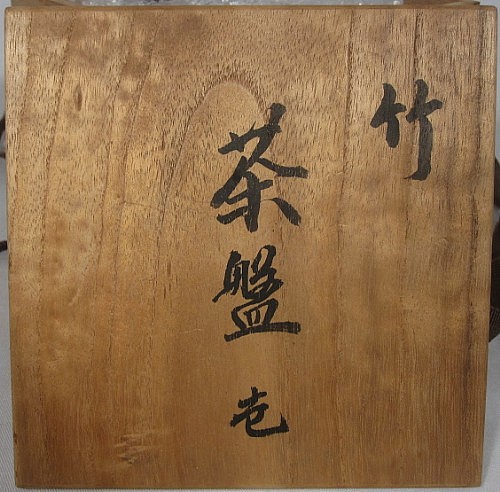 竹
茶盤 壱